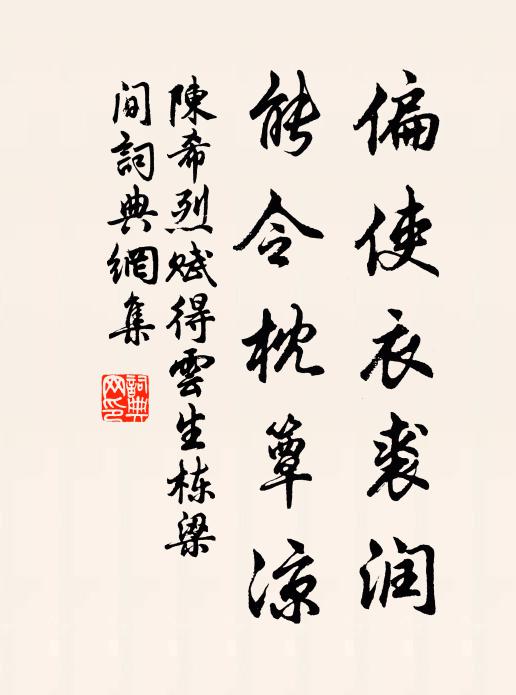 偏使衣裘润
能令枕簟凉
陳希烈赋得雲生栋梁
间詞典網集
詞典
网印